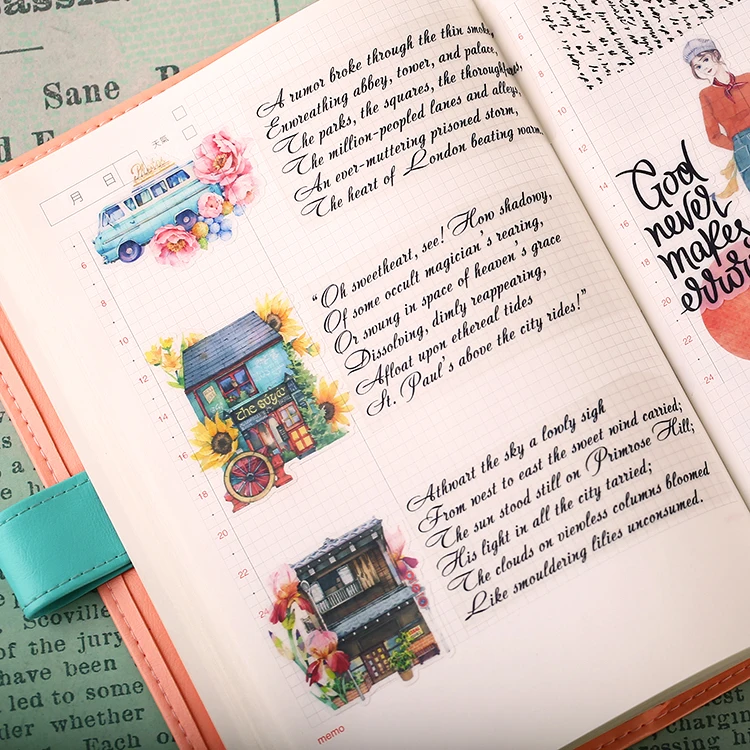 Sane
月 日 天気
A rumor broke through the thin smoke,
Enwreathing abbey, tower, and palace,
The parks, the squares, the thoroughfares,
The million-peopled lanes and alleys,
An ever-muttering prisoned storm,
The heart of London beating warm.
6
8
10
12
14
16
18
20
22
24
the sugar
"Oh sweetheart, see! How shadowy,
Of some occult magician's rearing,
Or swung in space of heaven's grace
Dissolving, dimly reappearing,
Afloat upon ethereal tides
St. Paul's above the city rides!"
Athwart the sky a lowly sigh
From west to east the sweet wind carried;
The sun stood still on Primrose Hill;
His light in all the city tarried;
The clouds on viewless columns bloomed
Like smouldering lilies unconsumed.
memo
6
8
10
12
14
16
18
20
22
24
God
never
makes
errors
Scoville
of the jury
have been
led to some
der whether
Each
charging